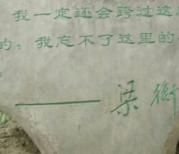 我一定还会跨过这
的；我忘不了这里的
——梁衡